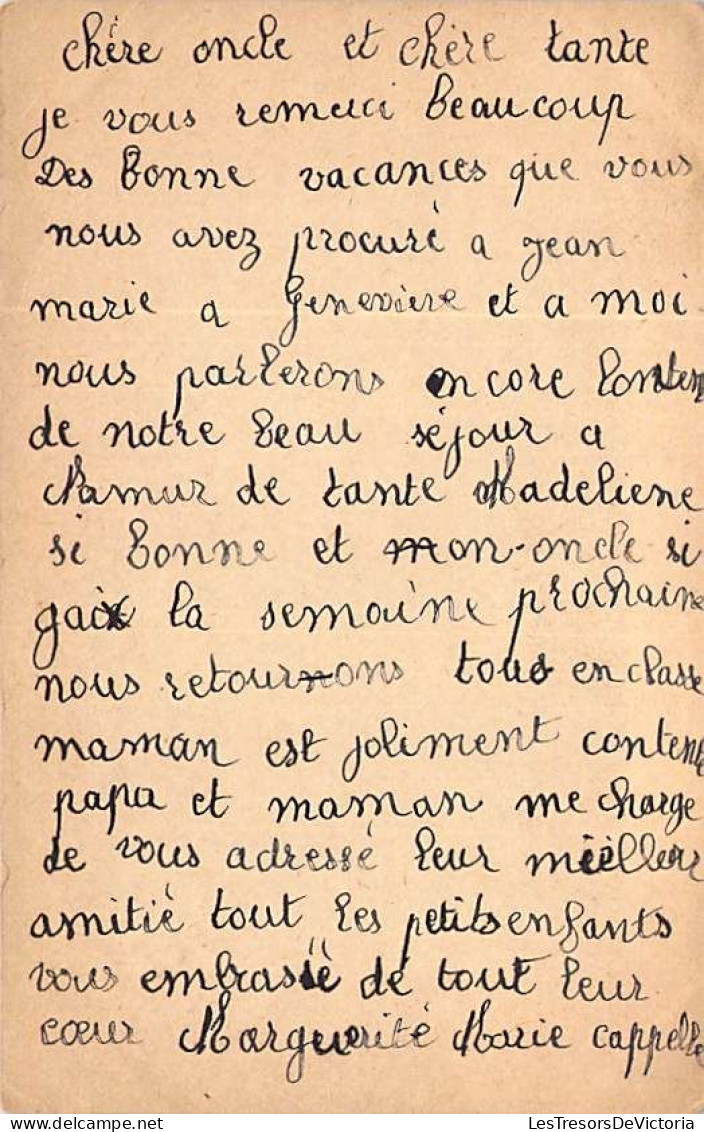 chère oncle et chère tante
je vous remerci beaucoup
Des bonne vacances que vous
nous avez procuré a jean
marie a Geneviève et a moi
nous parlerons encore lontem
de notre beau séjour a
Namur de tante Madeliene
si bonne et mon-oncle si
gai la semaine prochaine
nous retournons tous en classe
maman est joliment contente
papa et maman me charge
de vous adressé leur meilleur
amitié tout les petits enfants
vous embrassé de tout leur
cœur Marguerité Marie cappelle
LesTresorsDeVictoria